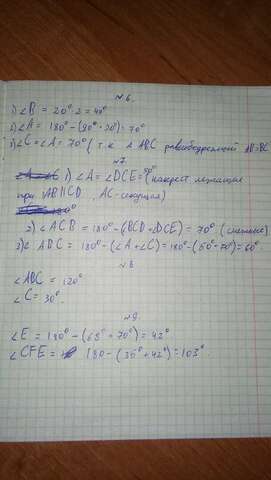 №6
1) ∠B = 20°·2 = 40°
2) ∠A = 180° - (90° + 20°) = 70°
3) ∠C = ∠A = 70° (т.к. Δ ABC равнобедренный AB=BC
№7
1) ∠A = ∠DCE = (накрест лежащие
при AB||CD, AC-секущая)
2) ∠ACB = 180° - (BCD + DCE) = 70° (смежные)
3) ∠ ABC = 180° - (∠A + ∠C) = 180° - (50° + 70°) = 60°
№8
∠ABC = 120°
∠C = 30°.
№9.
∠E = 180° - (68° + 70°) = 42°
∠CFE = 180 - (35° + 42°) = 103°